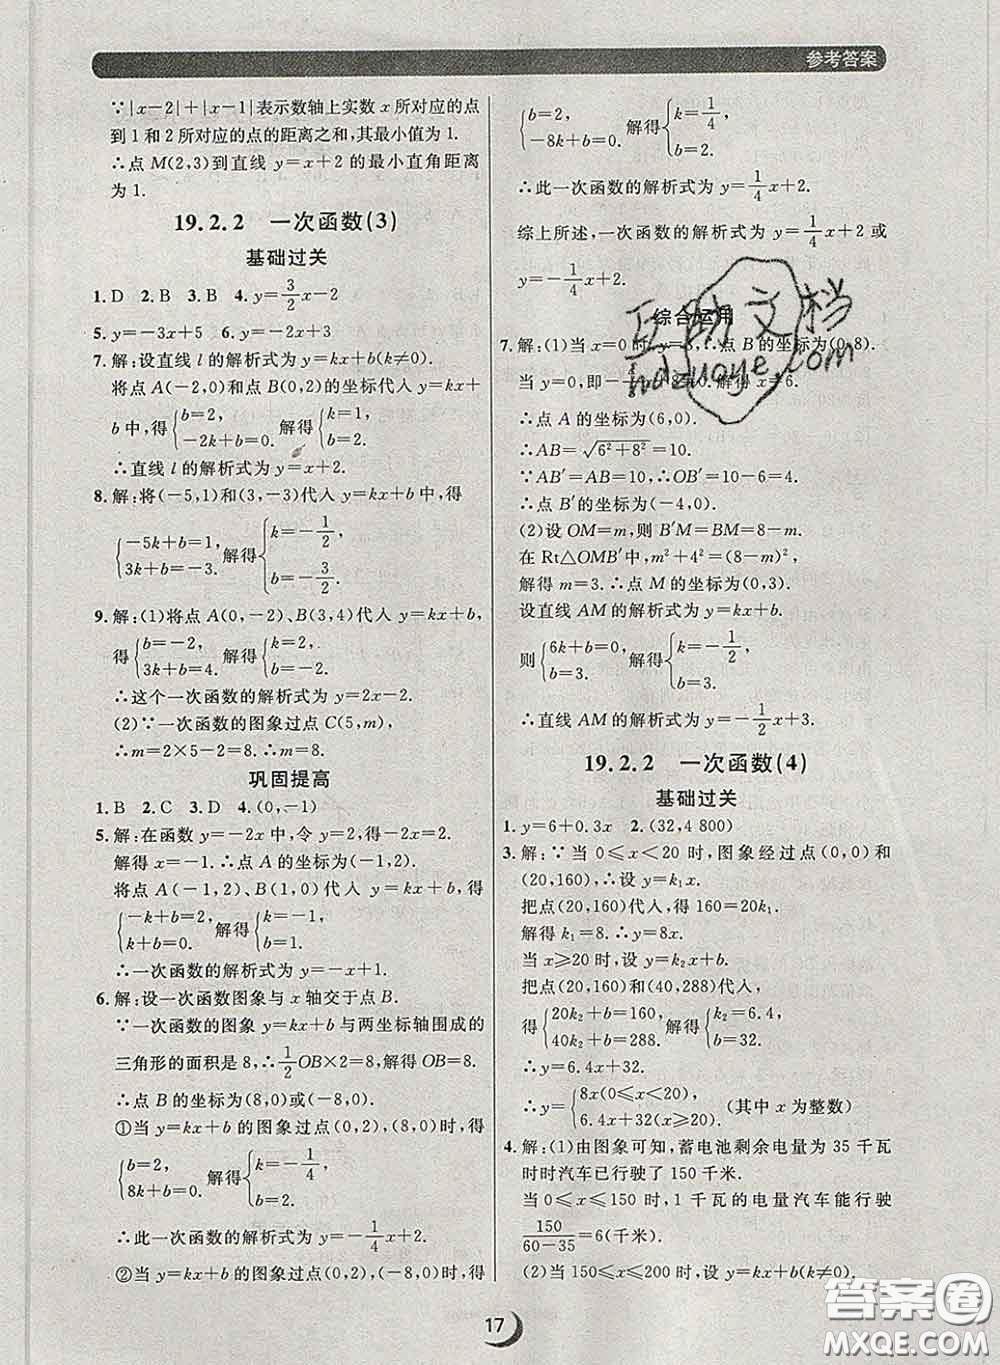 参考答案
∵|x-2|+|x-1|表示数轴上实数 x 所对应的点
到 1 和 2 所对应的点的距离之和,其最小值为 1.
∴点 M(2,3)到直线 y=x+2 的最小直角距离
为 1.
19.2.2 一次函数(3)
基础过关
1.D 2.B 3.B 4.y=3/2x-2
5.y=-3x+5 6.y=-2x+3
7.解:设直线 l 的解析式为 y=kx+b(k≠0).
将点 A(-2,0)和点 B(0,2)的坐标代入 y=kx+
b 中,得{b=2, -2k+b=0. 解得{k=1, b=2.
∴直线 l 的解析式为 y=x+2.
8.解:将(-5,1)和(3,-3)代入 y=kx+b 中,得
{-5k+b=1, 3k+b=-3. 解得{k=-1/2, b=-3/2.
9.解:(1)将点 A(0,-2)、B(3,4)代入 y=kx+b,
得{b=-2, 3k+b=4. 解得{k=2, b=-2.
∴这个一次函数的解析式为 y=2x-2.
(2)∵一次函数的图象过点 C(5,m),
∴m=2×5-2=8.∴m=8.
巩固提高
1.B 2.C 3.D 4.(0,-1)
5.解:在函数 y=-2x 中,令 y=2,得-2x=2.
解得 x=-1.∴点 A 的坐标为(-1,2).
将点 A(-1,2)、B(1,0)代入 y=kx+b,得
{-k+b=2, k+b=0. 解得{k=-1, b=1.
∴一次函数的解析式为 y=-x+1.
6.解:设一次函数图象与 x 轴交于点 B.
∵一次函数的图象 y=kx+b 与两坐标轴围成的
三角形的面积是 8,∴1/2OB×2=8,解得 OB=8.
∴点 B 的坐标为(8,0)或(-8,0).
①当 y=kx+b 的图象过点(0,2),(8,0)时,得
{b=2, 8k+b=0. 解得{k=-1/4, b=2.
∴此一次函数的解析式为 y=-1/4x+2.
②当 y=kx+b 的图象过点(0,2),(-8,0)时,得
{b=2, -8k+b=0. 解得{k=1/4, b=2.
∴此一次函数的解析式为 y=1/4x+2.
综上所述,一次函数的解析式为 y=1/4x+2 或
y=-1/4x+2.
综合运用
7.解:(1)当 x=0 时,y=8,∴点 B 的坐标为(0,8).
当 y=0,即- x+8=0.解得 x=6.
∴点 A 的坐标为(6,0).
∴AB=√6²+8²=10.
∵AB′=AB=10,∴OB′=10-6=4.
∴点 B′的坐标为(-4,0).
(2)设 OM=m,则 B′M=BM=8-m.
在 Rt△OMB′中,m²+4²=(8-m)²,
解得 m=3.∴点 M 的坐标为(0,3).
设直线 AM 的解析式为 y=kx+b.
则{6k+b=0, b=3. 解得{k=-1/2, b=3.
∴直线 AM 的解析式为 y=-1/2x+3.
19.2.2 一次函数(4)
基础过关
1.y=6+0.3x 2.(32,4 800)
3.解:∵当 0≤x<20 时,图象经过点(0,0)和
(20,160),∴设 y=k₁x.
把点(20,160)代入,得 160=20k₁.
解得 k₁=8.∴y=8x.
当 x≥20 时,设 y=k₂x+b.
把点(20,160)和(40,288)代入,
得{20k₂+b=160, 40k₂+b=288. 解得{k₂=6.4, b=32.
∴y=6.4x+32.
∴y={8x(0≤x<20) 6.4x+32(x≥20). (其中 x 为整数)
4.解:(1)由图象可知,蓄电池剩余电量为 35 千瓦
时时汽车已行驶了 150 千米.
当 0≤x≤150 时,1 千瓦的电量汽车能行驶
150/60-35=6(千米).
(2)当 150≤x≤200 时,设 y=kx+b(k≠0),
17
互助文档
hdzuoye.com
答案圈
MXQE.COM